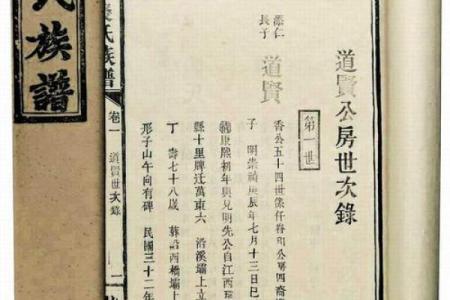 氏族譜
道賢公房世次錄
第一世
添仁
長子
道賢
香公五十四世
子 明崇禎庚辰年七月十三日巳
康熙初年與兄明先公自江西
縣十里牌迁萬東六 沿溪壩上立
丁 壽七十八歲 葬
形子山午向有碑 民國三十二年
氏族譜
卷一
道賢世次錄
二